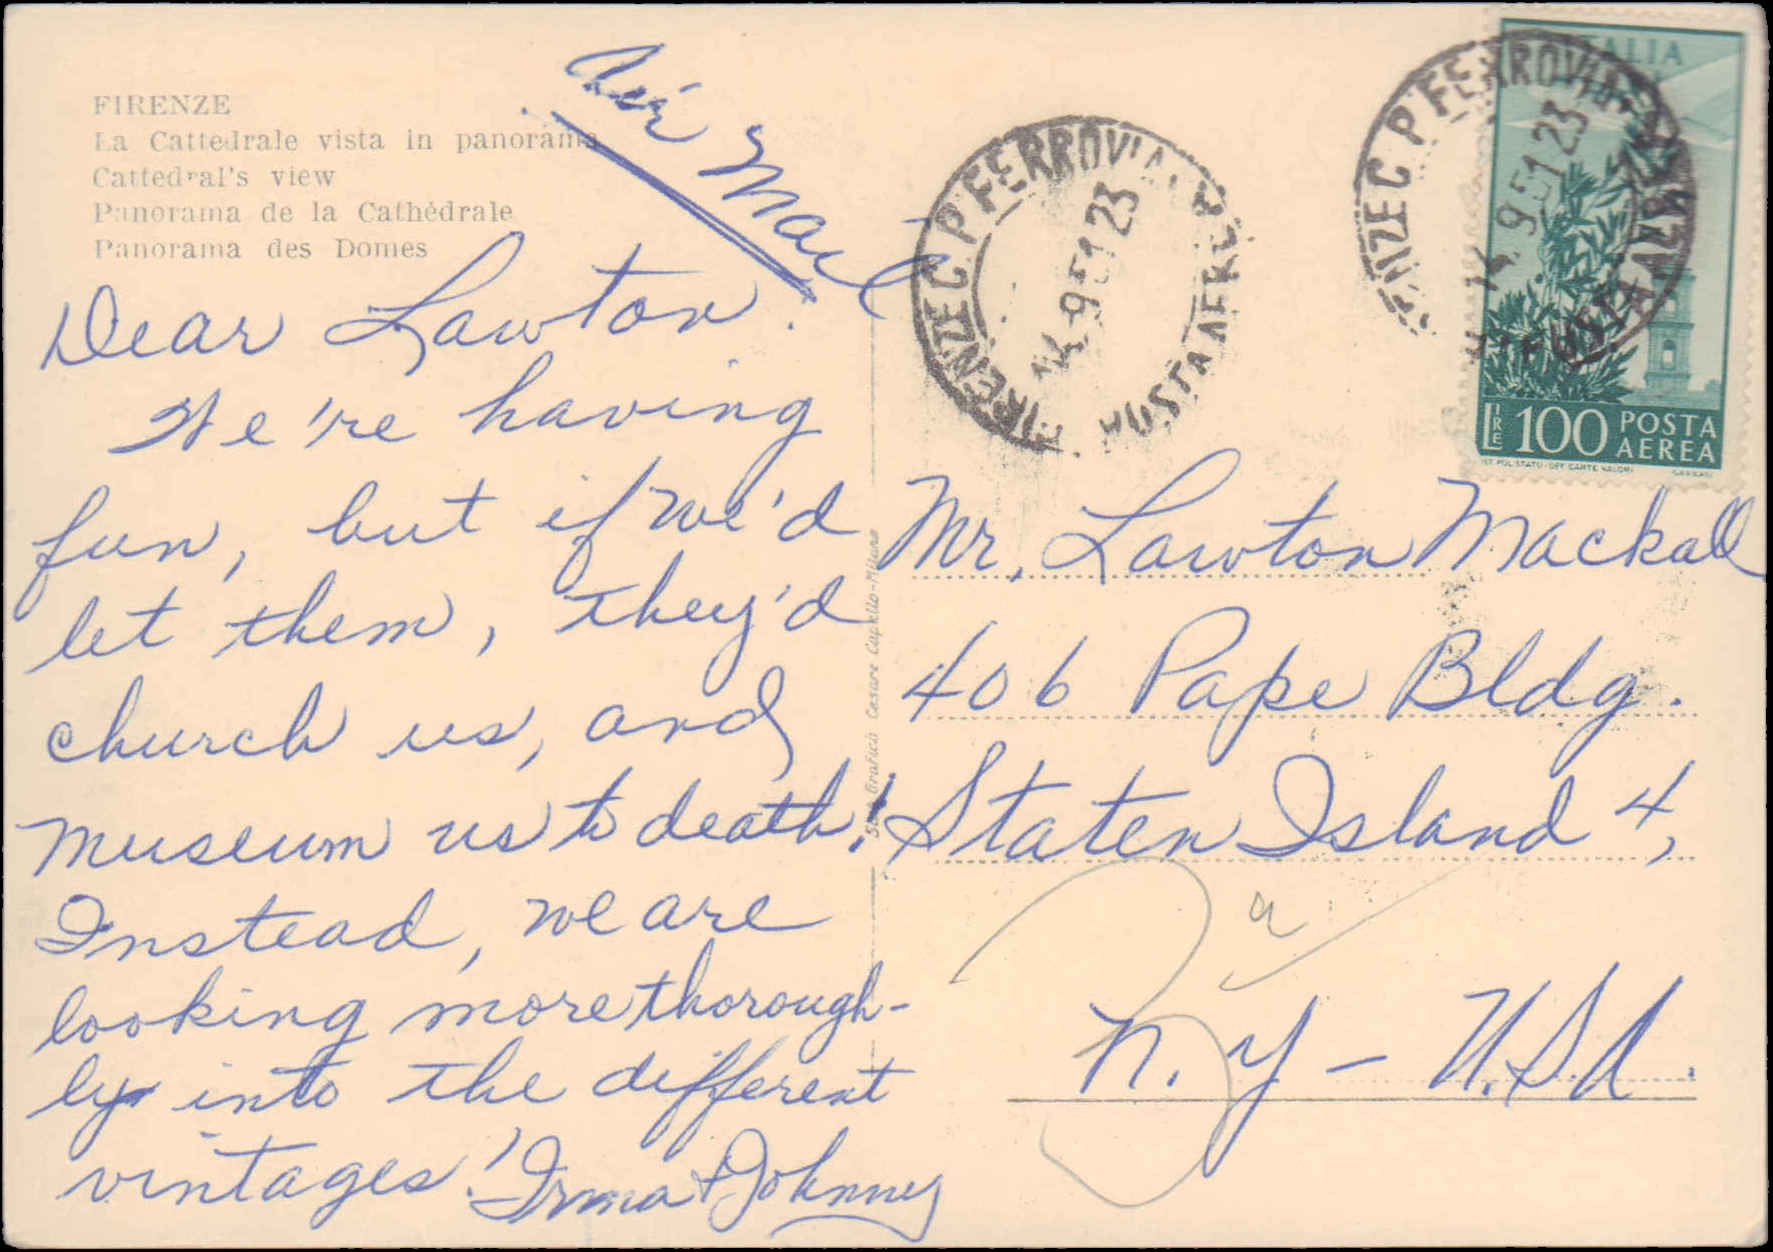 FIRENZE
La Cattedrale vista in panorama
Cattedral's view
Panorama de la Cathédrale
Panorama des Domes
Air Mail
Dear Lawton.
We're having
fun, but if we'd
let them, they'd
church us, and
museum us to death!
Instead, we are
looking more thorough-
ly into the different
vintages! Irma & Johnny
Grafico Cesare Capello-Milano
FIRENZE C P FERROVIA
14.9.51 23
POSTA AEREA
ENZE C P FERROVIA
14.9.51 23
POSTA AEREA
ITALIA
LIRE 100 POSTA
AEREA
IST. POL. STATO-OFF. CARTE VALORI
Mr. Lawton Mackall
406 Pape Bldg.
Staten Island 4,
N.Y - U.S.A.